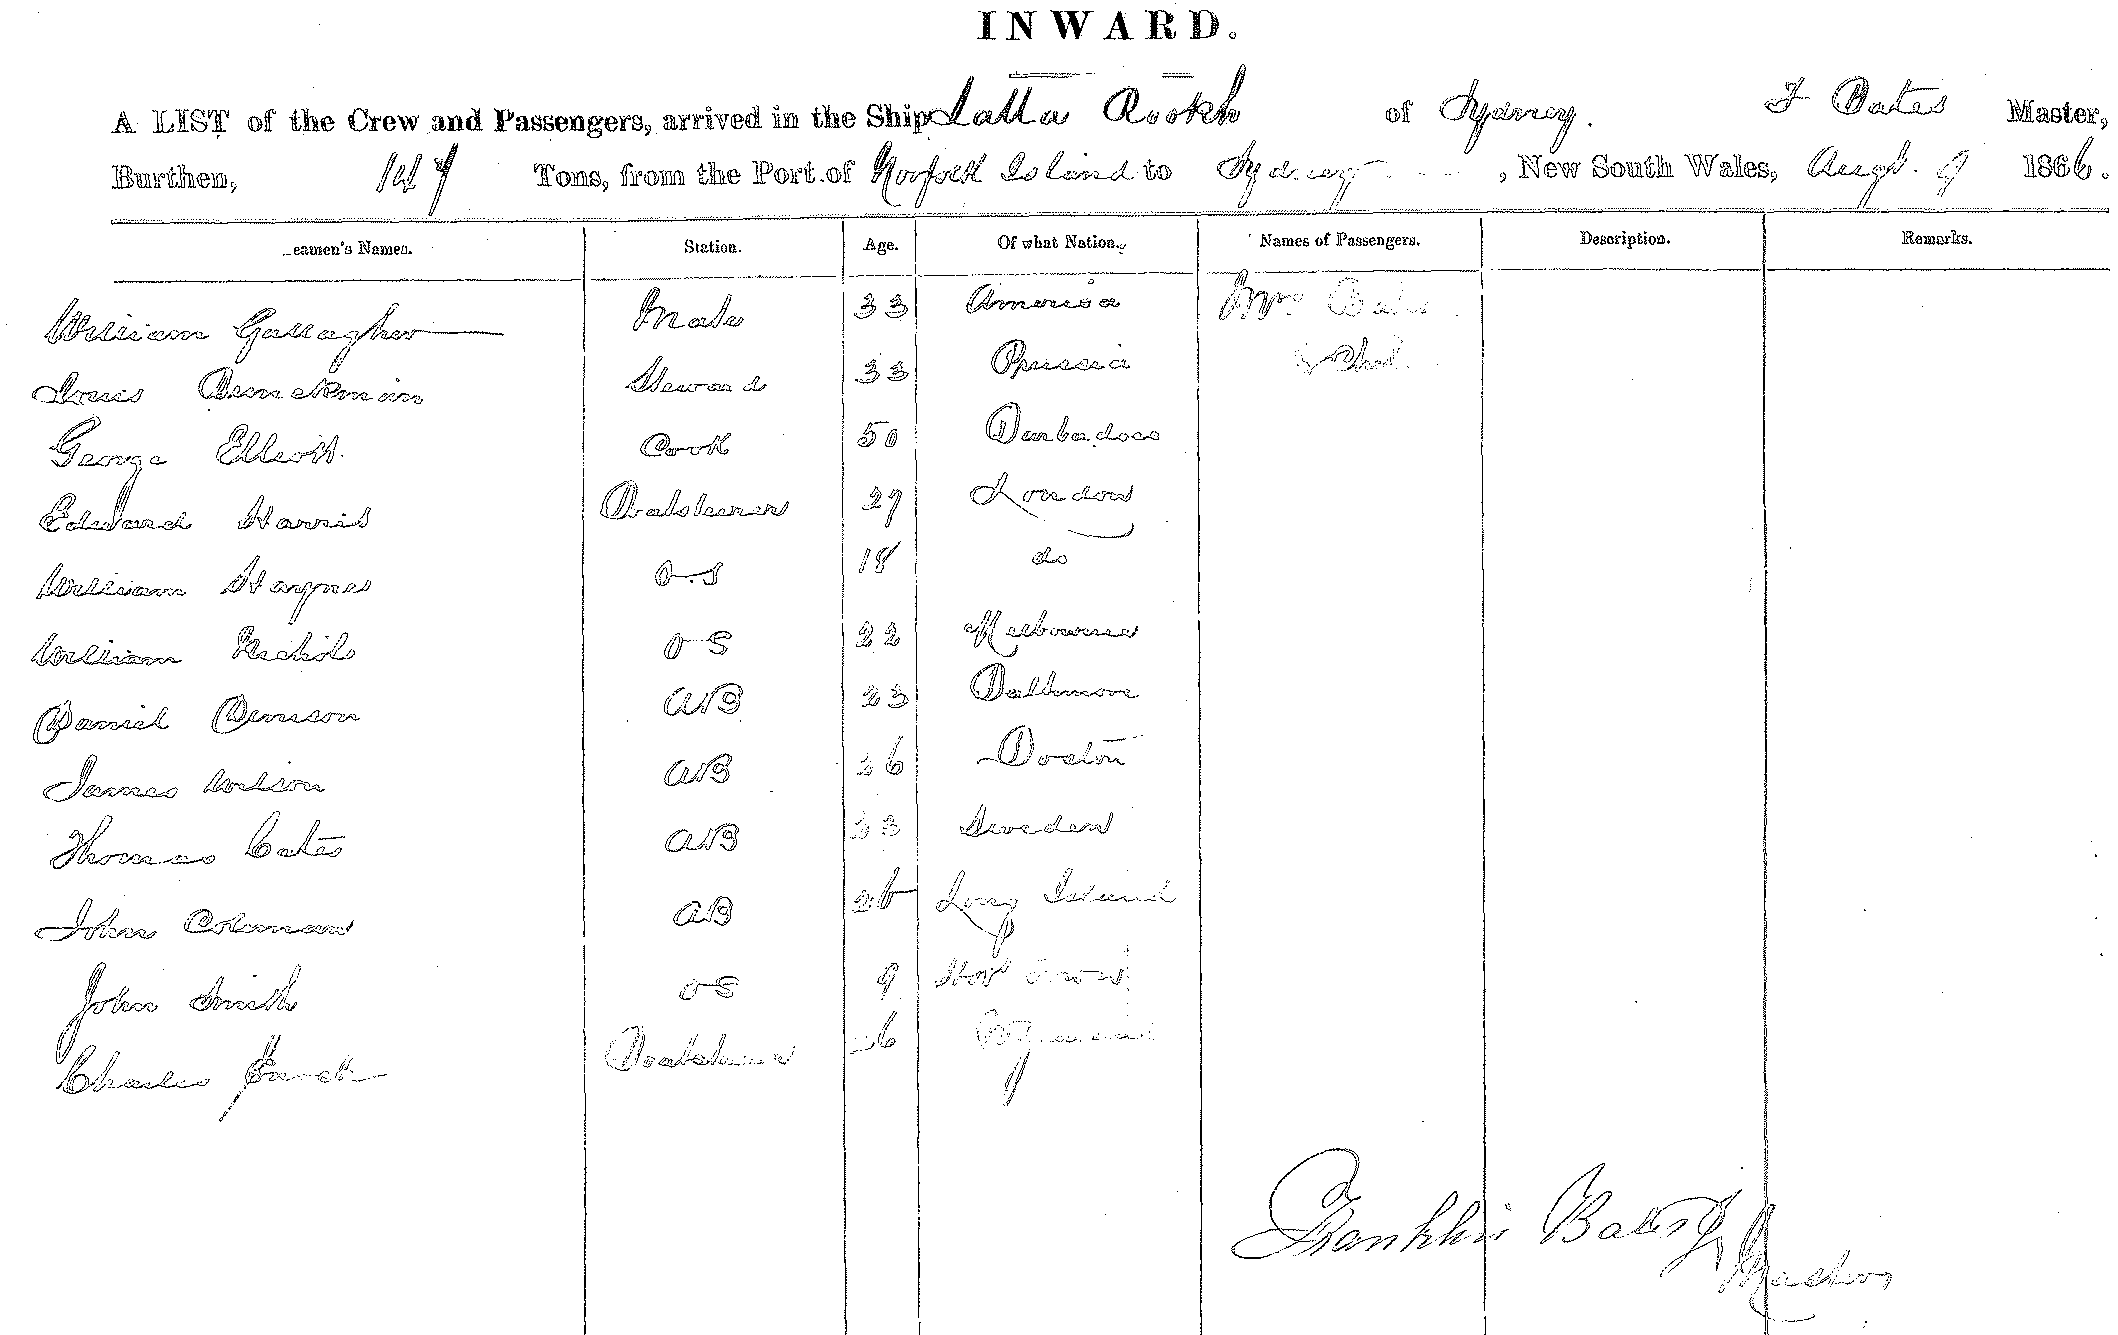 INWARD.
A LIST of the Crew and Passengers, arrived in the Ship Lalla Rookh of Sydney. F Bates Master,
Burthen, 147 Tons, from the Port of Norfolk Island to Sydney, New South Wales, Augt. 9 1866.
eamen's Names. Station. Age. Of what Nation. Names of Passengers. Description. Remarks.
William Gallagher Mate 33 America Mrs Bates
Louis Steward 33 Prussia
George Elliott. Cook 50 Barbadoes
Edward Harris Boatsteerer 27 London
William Haynes O.S 18 do
William Nichols OS 22 Melbourne
Daniel Denison AB 23 Baltimore
James Wilson AB 26 Boston
Thomas Cates AB 33 Sweden
John Coleman AB 26 Long Island
John Smith OS
Charles Boatsteerer
Franklin Bates Jr
Master